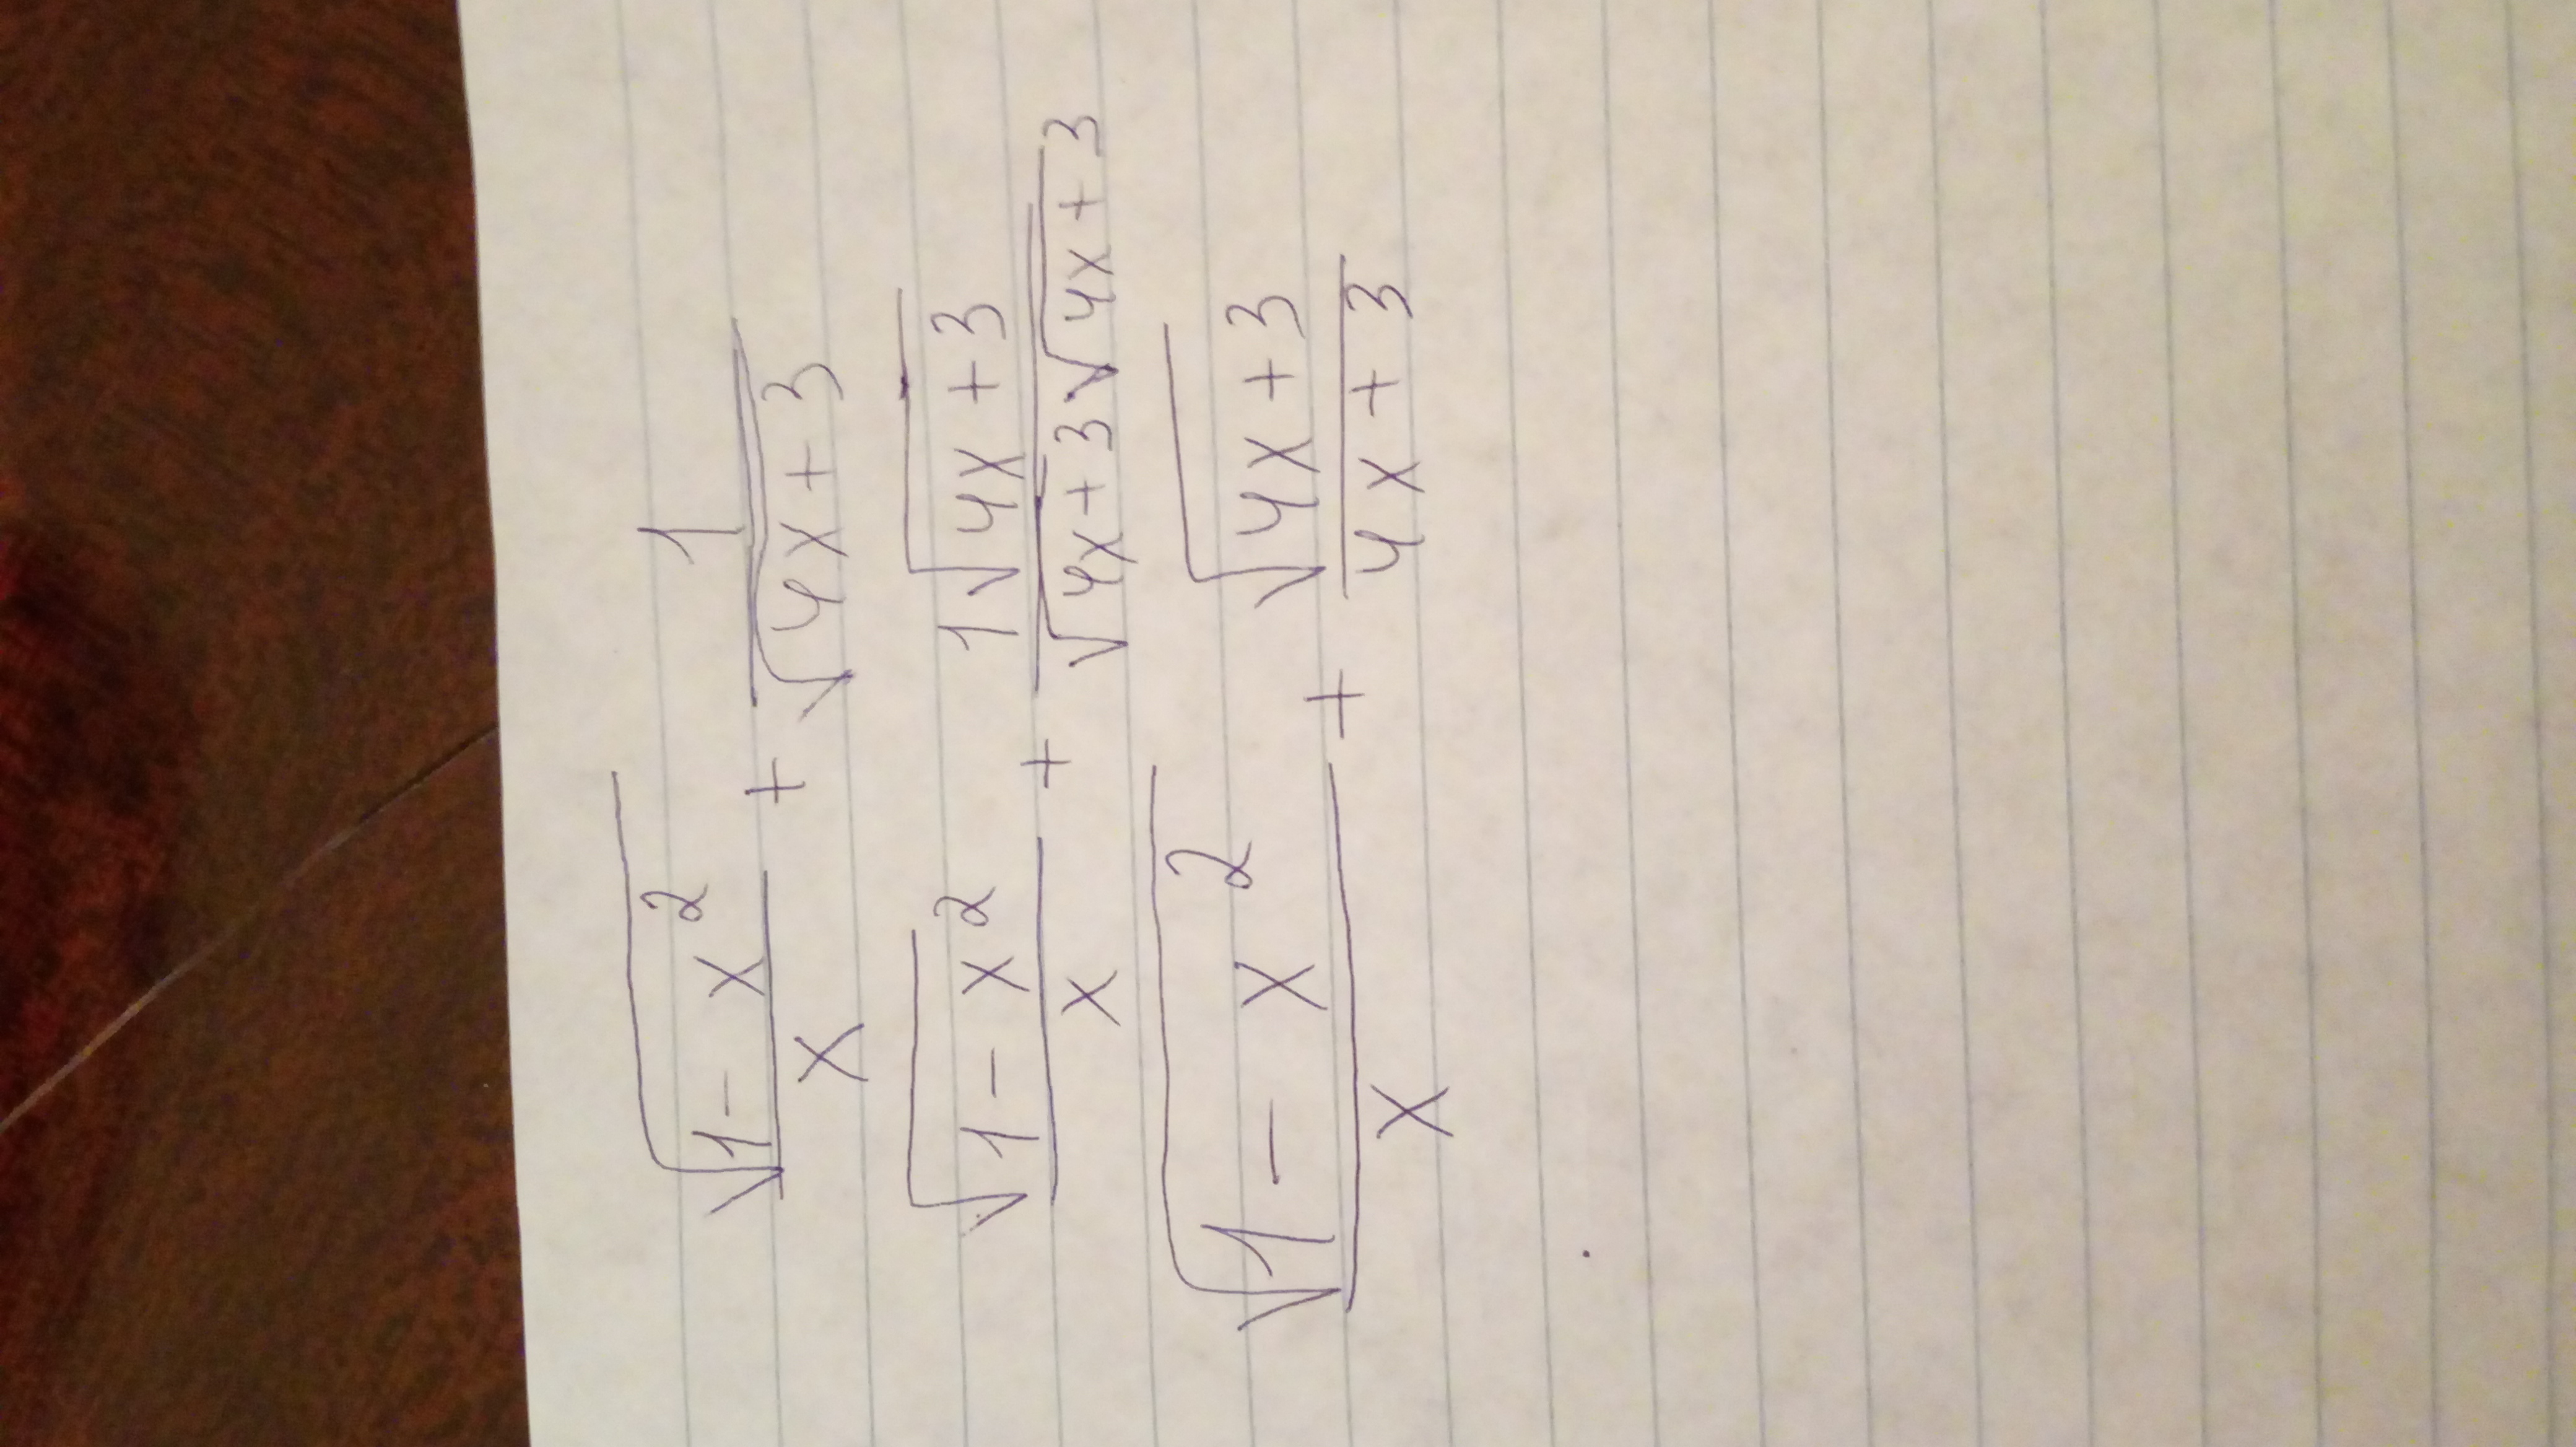 \frac{\sqrt{1-x^2}}{x} + \frac{1}{\sqrt{4x+3}}
\frac{\sqrt{1-x^2}}{x} + \frac{1\sqrt{4x+3}}{\sqrt{4x+3}\sqrt{4x+3}}
\frac{\sqrt{1-x^2}}{x} + \frac{\sqrt{4x+3}}{4x+3}